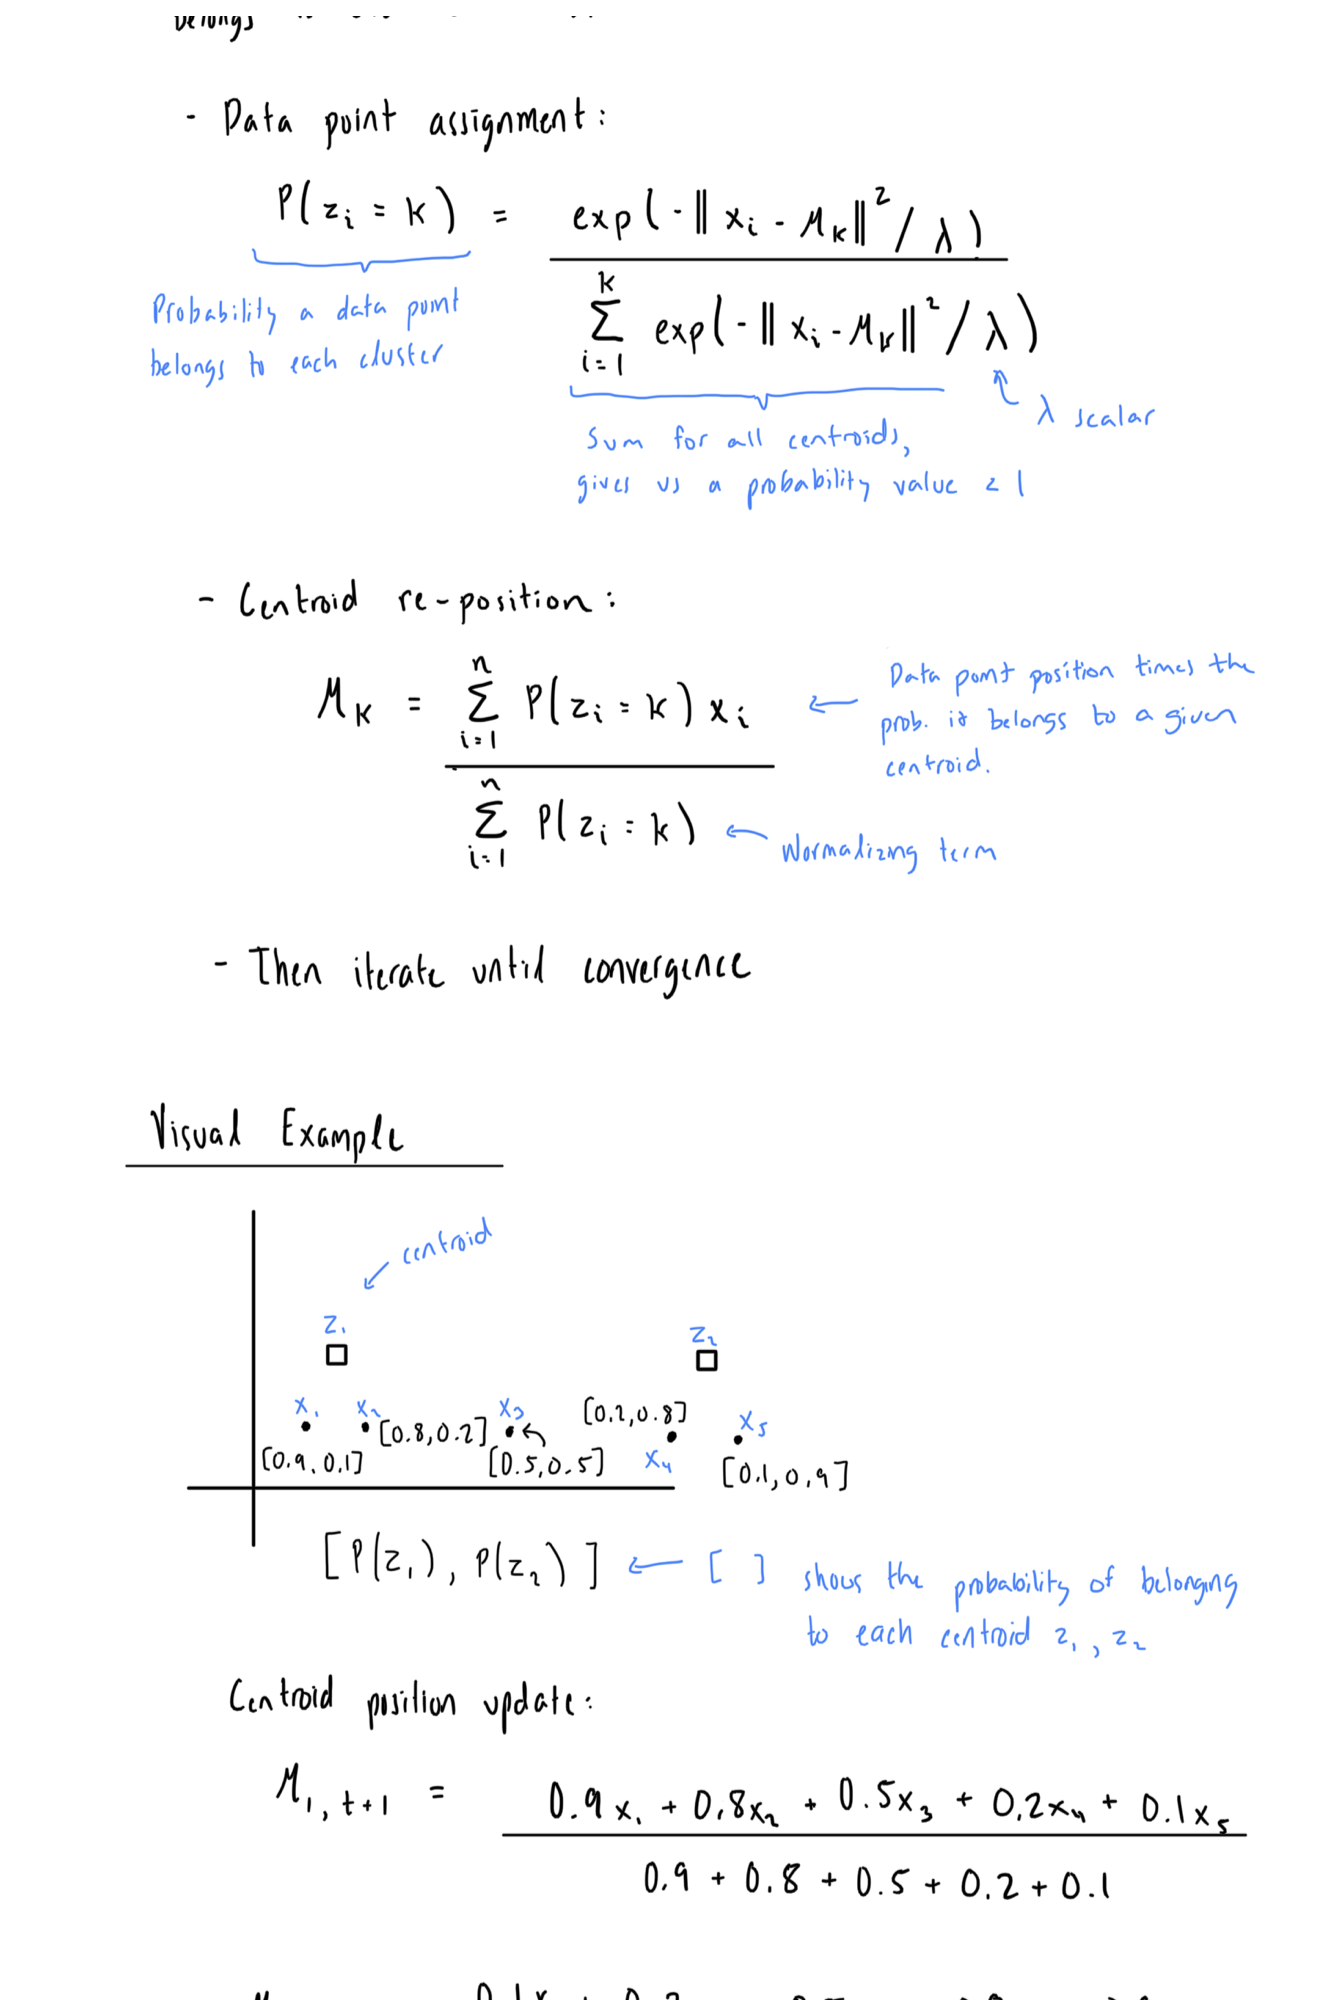 belongs
- Data point assignment:
P(z_i = k) = exp(-‖x_i - μ_k‖² / λ)
Σ_{i=1}^{k} exp(-‖x_i - μ_k‖² / λ)
Probability a data point
belongs to each cluster
λ scalar
Sum for all centroids,
gives us a probability value < 1
- Centroid re-position:
μ_k = Σ_{i=1}^{n} P(z_i = k) x_i
Σ_{i=1}^{n} P(z_i = k)
← Data point position times the
prob. it belongs to a given
centroid.
← Normalizing term
- Then iterate until convergence
Visual Example
centroid
z_1
z_2
x_1 x_2 [0.8,0.2] x_3 [0.2,0.8] x_5
[0.9,0.1] [0.5,0.5] x_4 [0.1,0.9]
[P(z_1), P(z_2)] ← [ ] shows the probability of belonging
to each centroid z_1, z_2
Centroid position update:
μ_{1,t+1} = 0.9x_1 + 0.8x_2 + 0.5x_3 + 0.2x_4 + 0.1x_5
0.9 + 0.8 + 0.5 + 0.2 + 0.1